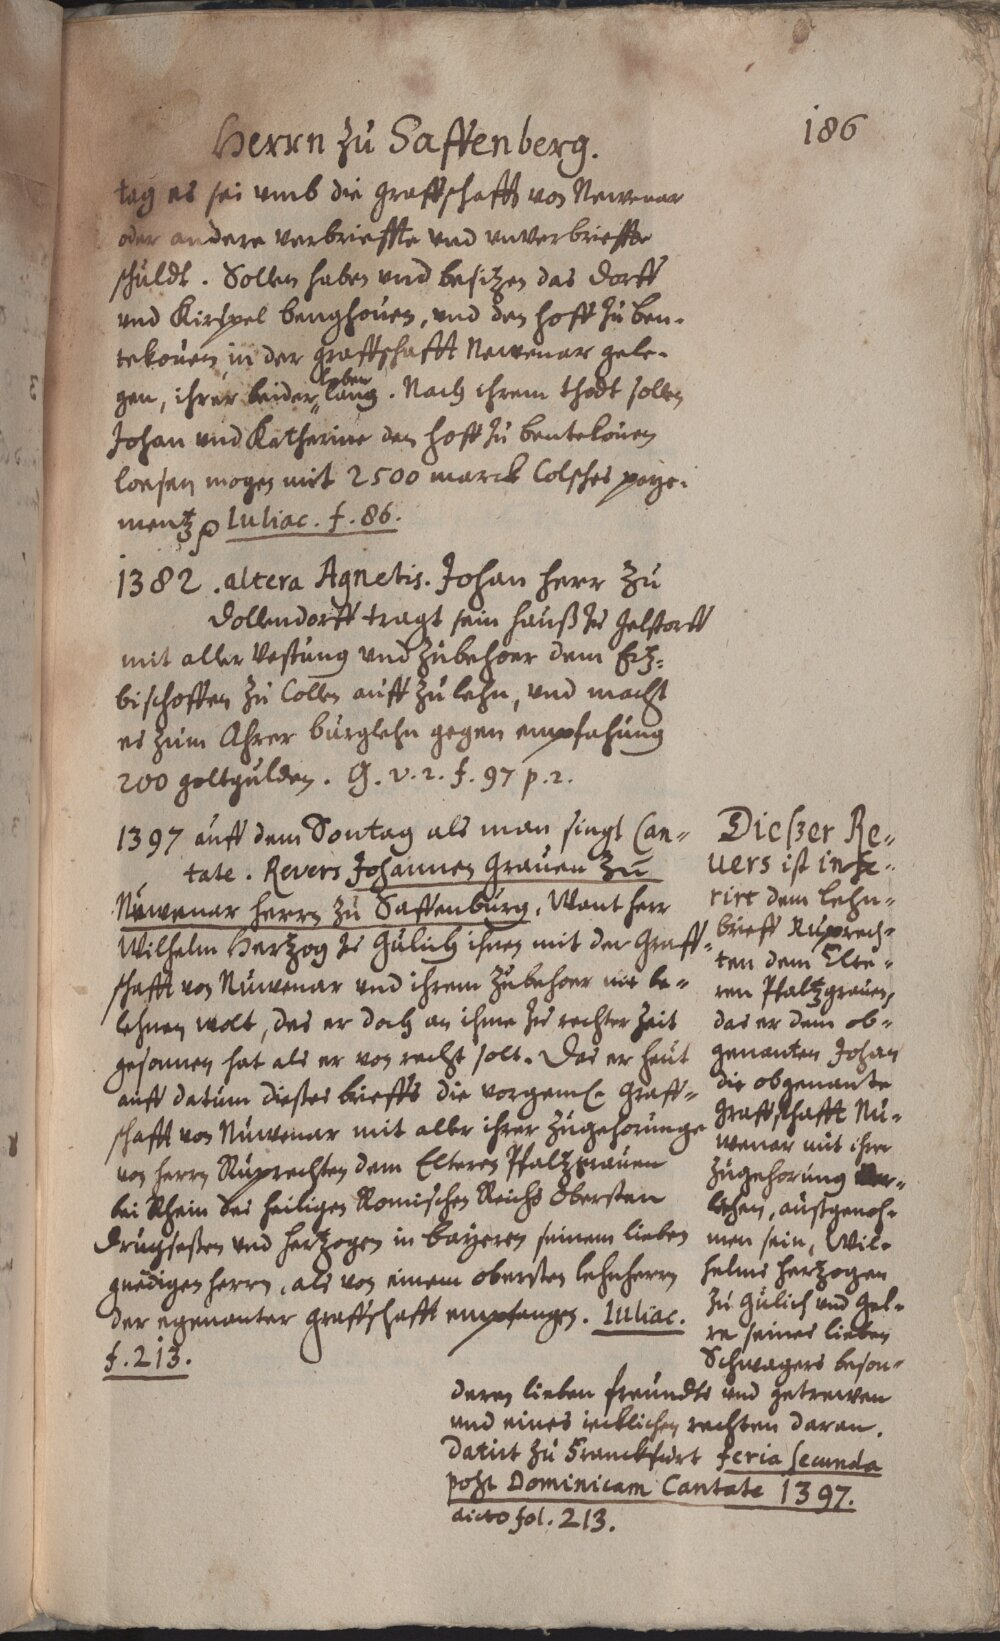 186
Herrn zu Saffenberg.
tag es sei umb die graffschafft von Newenar
oder andere verbrieffte und unverbrieffte
schuldt. Sollen haben und besitzen das dorff
und Kirspel benghouen, und den hoff zu ben-
tekouen in der graffschafft Newenar gele-
gen, ihrer beider leben lang. Nach ihrem thodt sollen
Johan und Katherine den hoff zu bentekouen
loesen mogen mit 2500 marck Colsches paye-
mentz Iuliac. f. 86.
1382. altera Agnetis. Johan herr zu
Dollendorff tragt sein hauß zu Gelstorff
mit aller Vestung und zubehoer dem Ertz-
bischoffen zu Collen auff zu lehn, und macht
es zum Ahrer burglehn gegen empfahung
200 goltgulden. G. v. 2. f. 97 p. 2.
1397 auff dem Sontag als man singt Can-
tate. Revers Johannen Grauen zu
Nuwenar herrn zu Saffenburg, Want herr
Wilhelm Hertzog zu Gulich ihnen mit der Graff-
schafft von Nuwenar und ihrem zubehoer nit be-
lehnen wolt, des er doch an ihme zu rechter zeit
gesonnen hat als er von recht solt. Das er heut
auff datum dieses brieffs die vorgemelt Graff-
schafft von Nuwenar mit aller ihrer zugehorunge
von herrn Ruprechten dem Elteren Pfaltzgrauen
bei Rhein des heiligen Romischen Reichs Obersten
Drugseßen und hertzogen in bayeren seinem lieben
gnedigen herrn, als von einem obersten lehnherrn
der egenanter graffschafft empfangen. Iuliac.
f. 213.
Dießer Re-
uers ist inse-
rirt dem lehn-
brieff Ruprech-
ten dem Elte-
ren Pfaltzgrauen,
das er dem ob-
genanten Johan
die obgenante
Graffschafft Nu-
wenar mit ihrer
zugehorung ver-
lehen, außgenoh-
men sein, Wil-
helms hertzogen
zu Gulich und Gel-
re seines lieben
Schwagers beson-
deren lieben freundts und getrewen
und eines iecklichen rechten daran.
Datirt zu Franckfurt feria secunda
post Dominicam Cantate 1397.
dicto fol. 213.